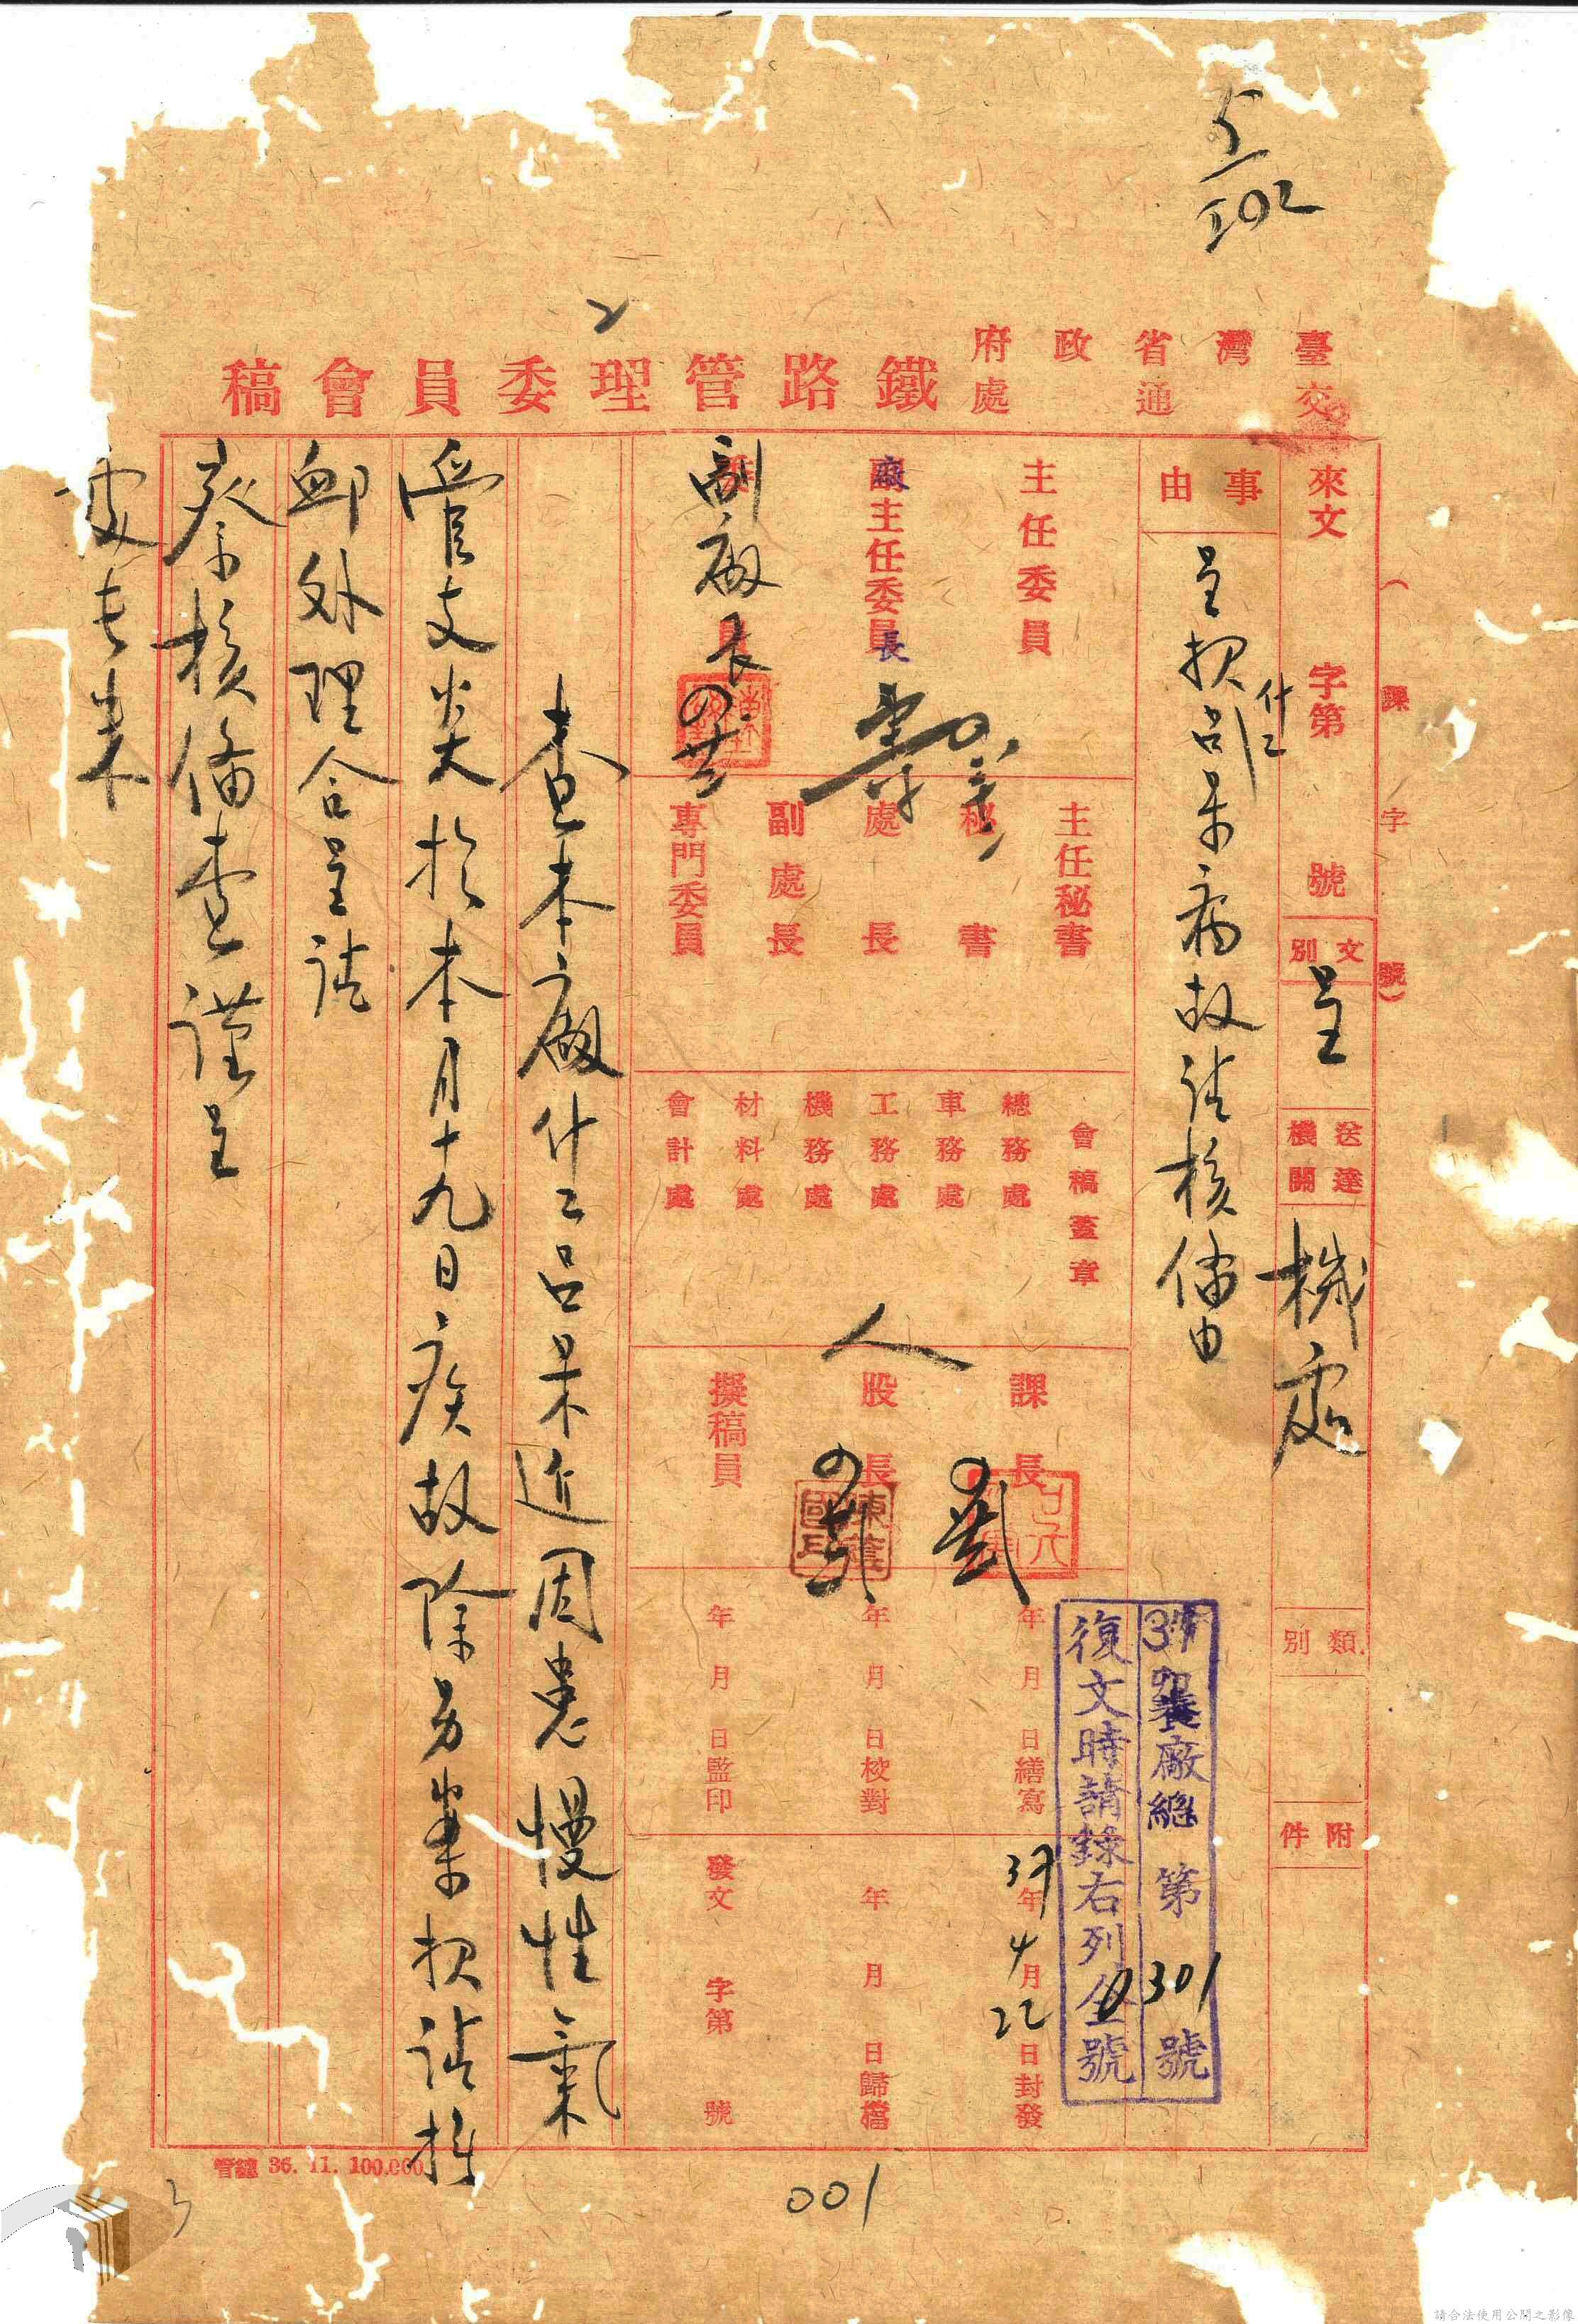 5/502
臺灣省政府
交通處
鐵路管理委員會稿
（　課　字　號）
來文　字第　號
文別
呈
送達機關
機處
類別
附件
事由
呈報什工呂呆病故請核備由
主任委員
廠
副主任委員
長
副廠長
主任秘書
秘書
處長
副處長
專門委員
會稿蓋章
總務處
車務處
工務處
機務處
材料處
會計處
人
課長
股長
擬稿員
年　月　日繕寫
年　月　日校對
年　月　日監印
37年4月22日封發
年　月　日歸檔
發文　字第　號
廠總　第0301號
復文時請錄右列全號
查本廠什工呂呆近因患慢性氣
管支炎於本月十九日疾故除另案報請撫
卹外理合呈請
察核備查謹呈
處長
管總 36. 11. 100.000
001
3
請合法使用公開之影像